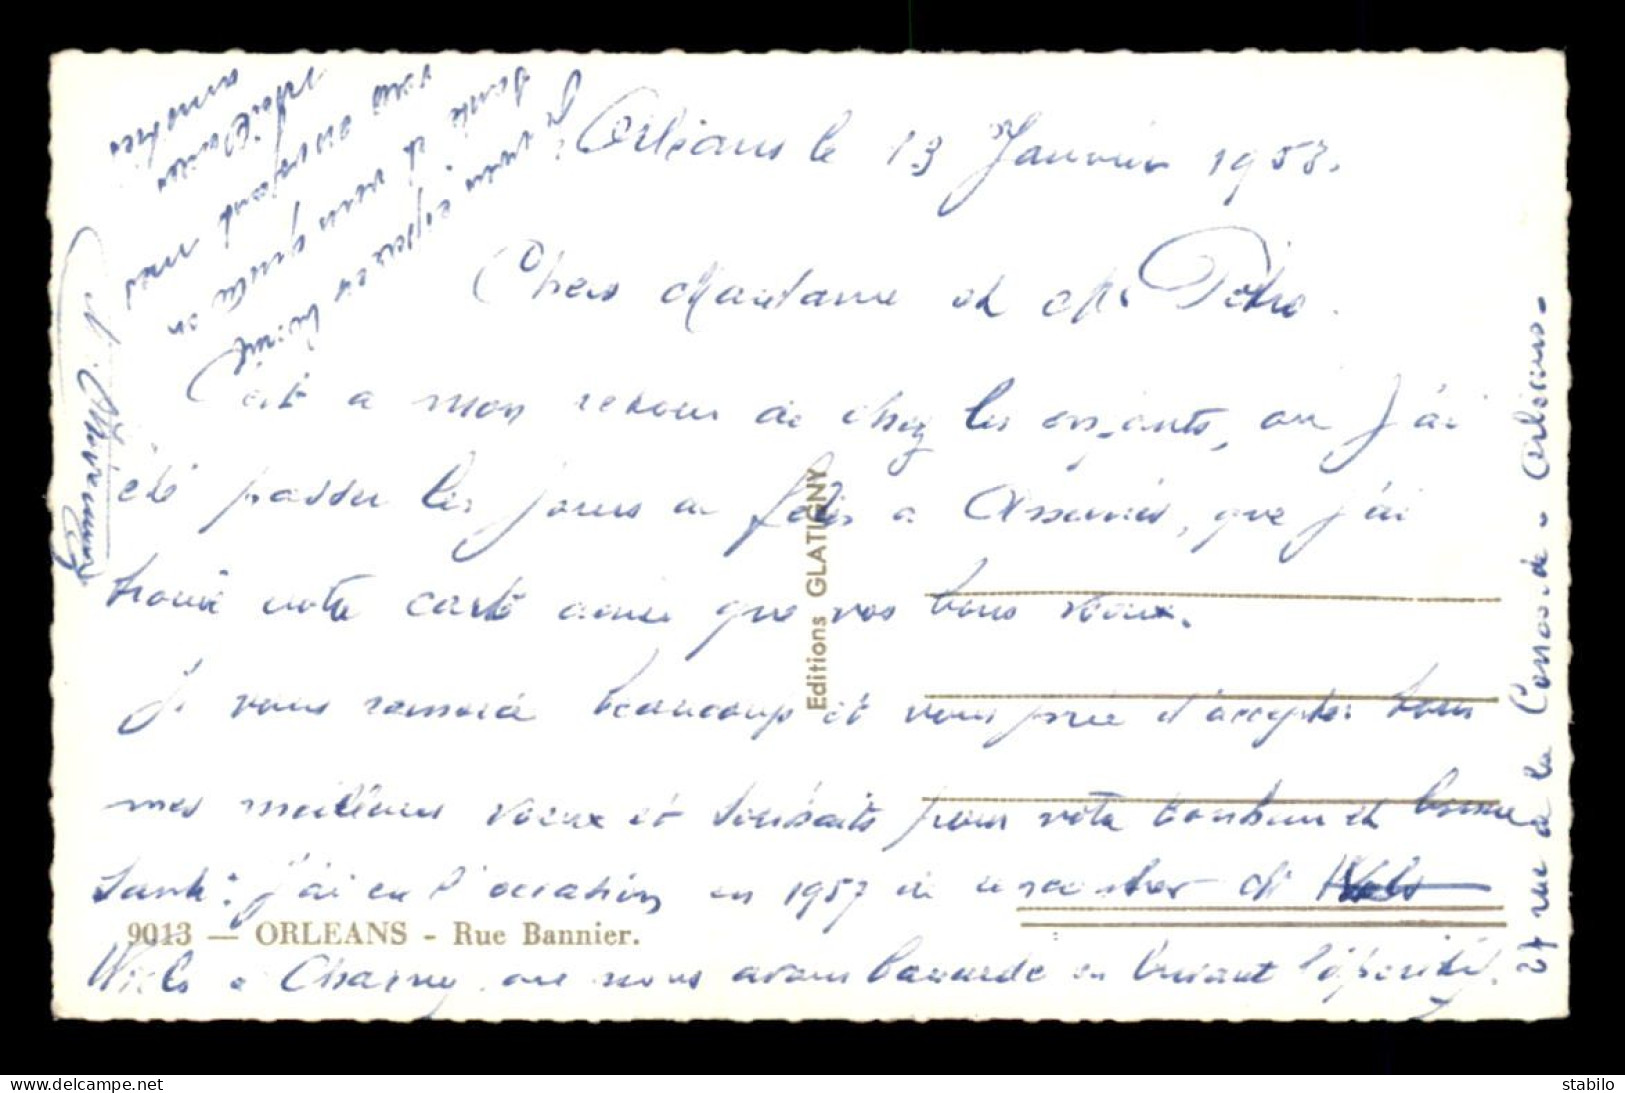 Orléans le 13 Janvier 1953.
Chers Madame et Mr
C'est a mon retour de chez les enfants, ou J'ai
été passer les jours de fêtes a que j'ai
trouvé votre carte ainsi que vos bons voeux.
Je vous remercie beaucoup et vous prie d'accepter tous
mes meilleurs voeux et souhaits pour votre bonheur et bonne
santé. j'ai eu l'occasion en 1957 de rencontrer
a Charny, ou nous avons bavardé en buvant l'apéritif.
Je vous espère en bonne
santé et vous quitte en
vous envoyant mes
meilleures
amitiés
27 rue de la Concorde - Orléans -
Editions GLATIGNY
9013 — ORLEANS - Rue Bannier.
delcampe.net
stabilo